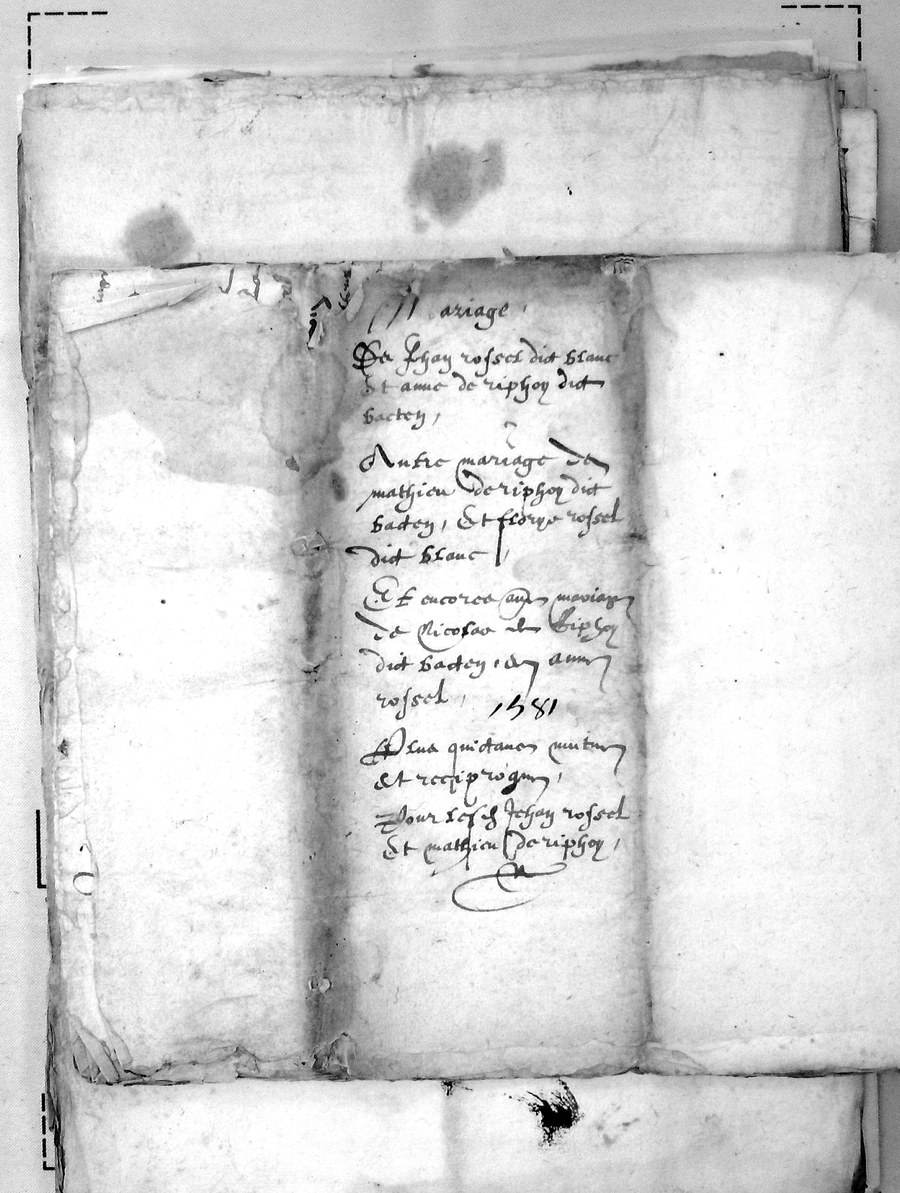 Mariage
De Jehan rossel dict blanc
Et anne de riphoy dict
bacten,
Autre mariage de
mathieu de riphoy dict
bacten, Et florye rossel
dict blanc
Et encores mariage
de Nicolas de Riphoy
dict bacten, anne
rossel, 1581
Plus quictance mutuel
et reciproque,
Pour lesd Jehan rossel
Et mathieu de riphoy,